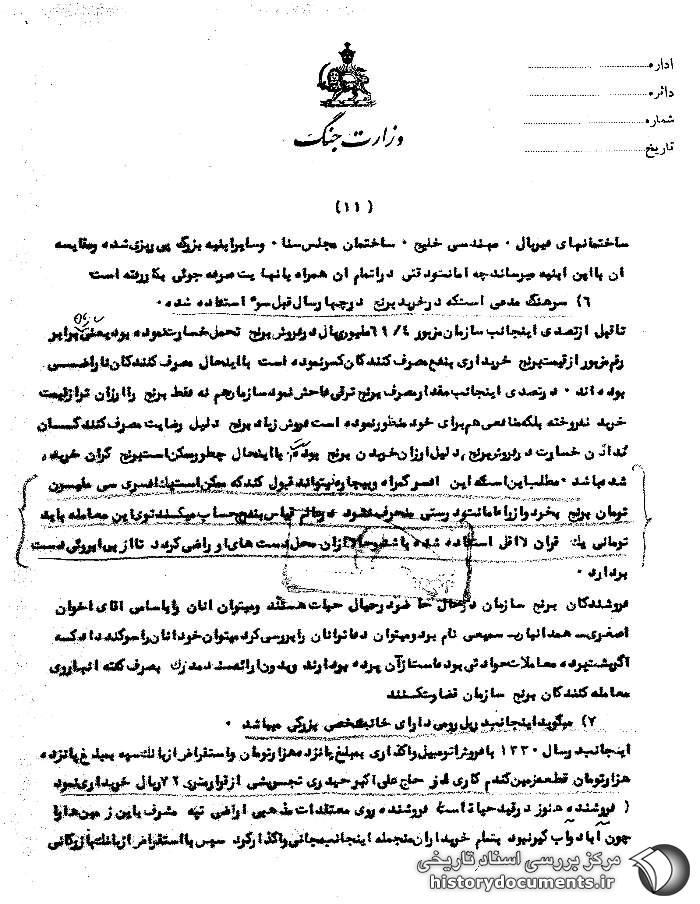 اداره
دائره
شماره
تاریخ
وزارت جنگ
(۱۱)
ساختمانهای ٠ مهندسی خلیج ٠ ساختمان مجلس سنا ٠ وسایر ابنیه بزرگ پی ریزی شده ومقایسه
آن با این ابنیه میرساند چه امانت ودقتی دراتمام ان همراه با نهایت صرفه جوئی بکار رفته است
۶) سرهنگ مدعی است که در خرید برنج در چهار سال قبل سوء استفاده شده ٠
تا قبل از تصدی اینجانب سازمان مزبور ۶۹/۴ ملیون ریال در فروش برنج تحمل خسارت نموده بود یعنی برابر
رقم مزبور از قیمت برنج خریداری بنفع مصرف کنندگان کسر نموده است با اینحال مصرف کنندگان ناراضی
بوده اند ٠ در تصدی اینجانب مقدار مصرف برنج ترقی فاحش نمود سازمان هم نه فقط برنج را ارزان تر از قیمت
خرید نفروخته بلکه منافعی هم برای خود منظور نموده است فروش زیاد برنج دلیل رضایت مصرف کنندگان
ندادن خسارت در فروش برنج دلیل ارزان خریدن برنج بوده با اینحال چطور ممکن است برنج گران خریده
شده باشد ٠ مطلب این است که این افسر گمراه وبیچاره نمیتواند قبول کند که ممکن است یک افسری سی ملیون
تومان برنج بخرد واز راه امانت ودرستی منحرف نشود قیاس بنفس حساب میکند توی این معامله باید
تومانی یک قران لااقل استفاده شده باشد وحالا از آن محل دست های او راضی کردند تا از بی ابروئی دست
بردارد ٠
فروشندگان برنج سازمان در حال حاضر در حیات هستند ومیتوان انان را باسامی اقای اخوان
اصغری ــ همدانیان ــ سمیعی نام برد ومیتوان دفاتر انان را بررسی کرد میتوان خود انان را سوگند داد که
اگر پشت پرده معاملات حوادثی بوده است از آن پرده بردارند وبدون ارائه سند ومدرک بصرف گفته
معامله کنندگان برنج سازمان قضاوت نکنند
۷) میگوید اینجانب در پل رومی دارای خانه شخصی بزرگی میباشد ٠
اینجانب در سال ۱۳۳۰ با فروش اتومبیل واگذاری بمبلغ پانزده هزار تومان واستقراض از بانک سپه بمبلغ پانزده
هزار تومان قطعه زمین گندم کاری از حاج علی اکبر حیدری تجریشی از قرار متری ۷۲ ریال خریداری نمود
( فروشنده هنوز در قید حیات است فروشنده روی معتقدات مذهبی اراضی تپه مشرف باین زمین ها را
چون آباد وآب گیر نبود بتمام خریداران منجمله اینجانب مجانی واگذار کرد سپس با استقراض از بانک بازرگانی
مرکز بررسی اسناد تاریخی
historydocuments.ir